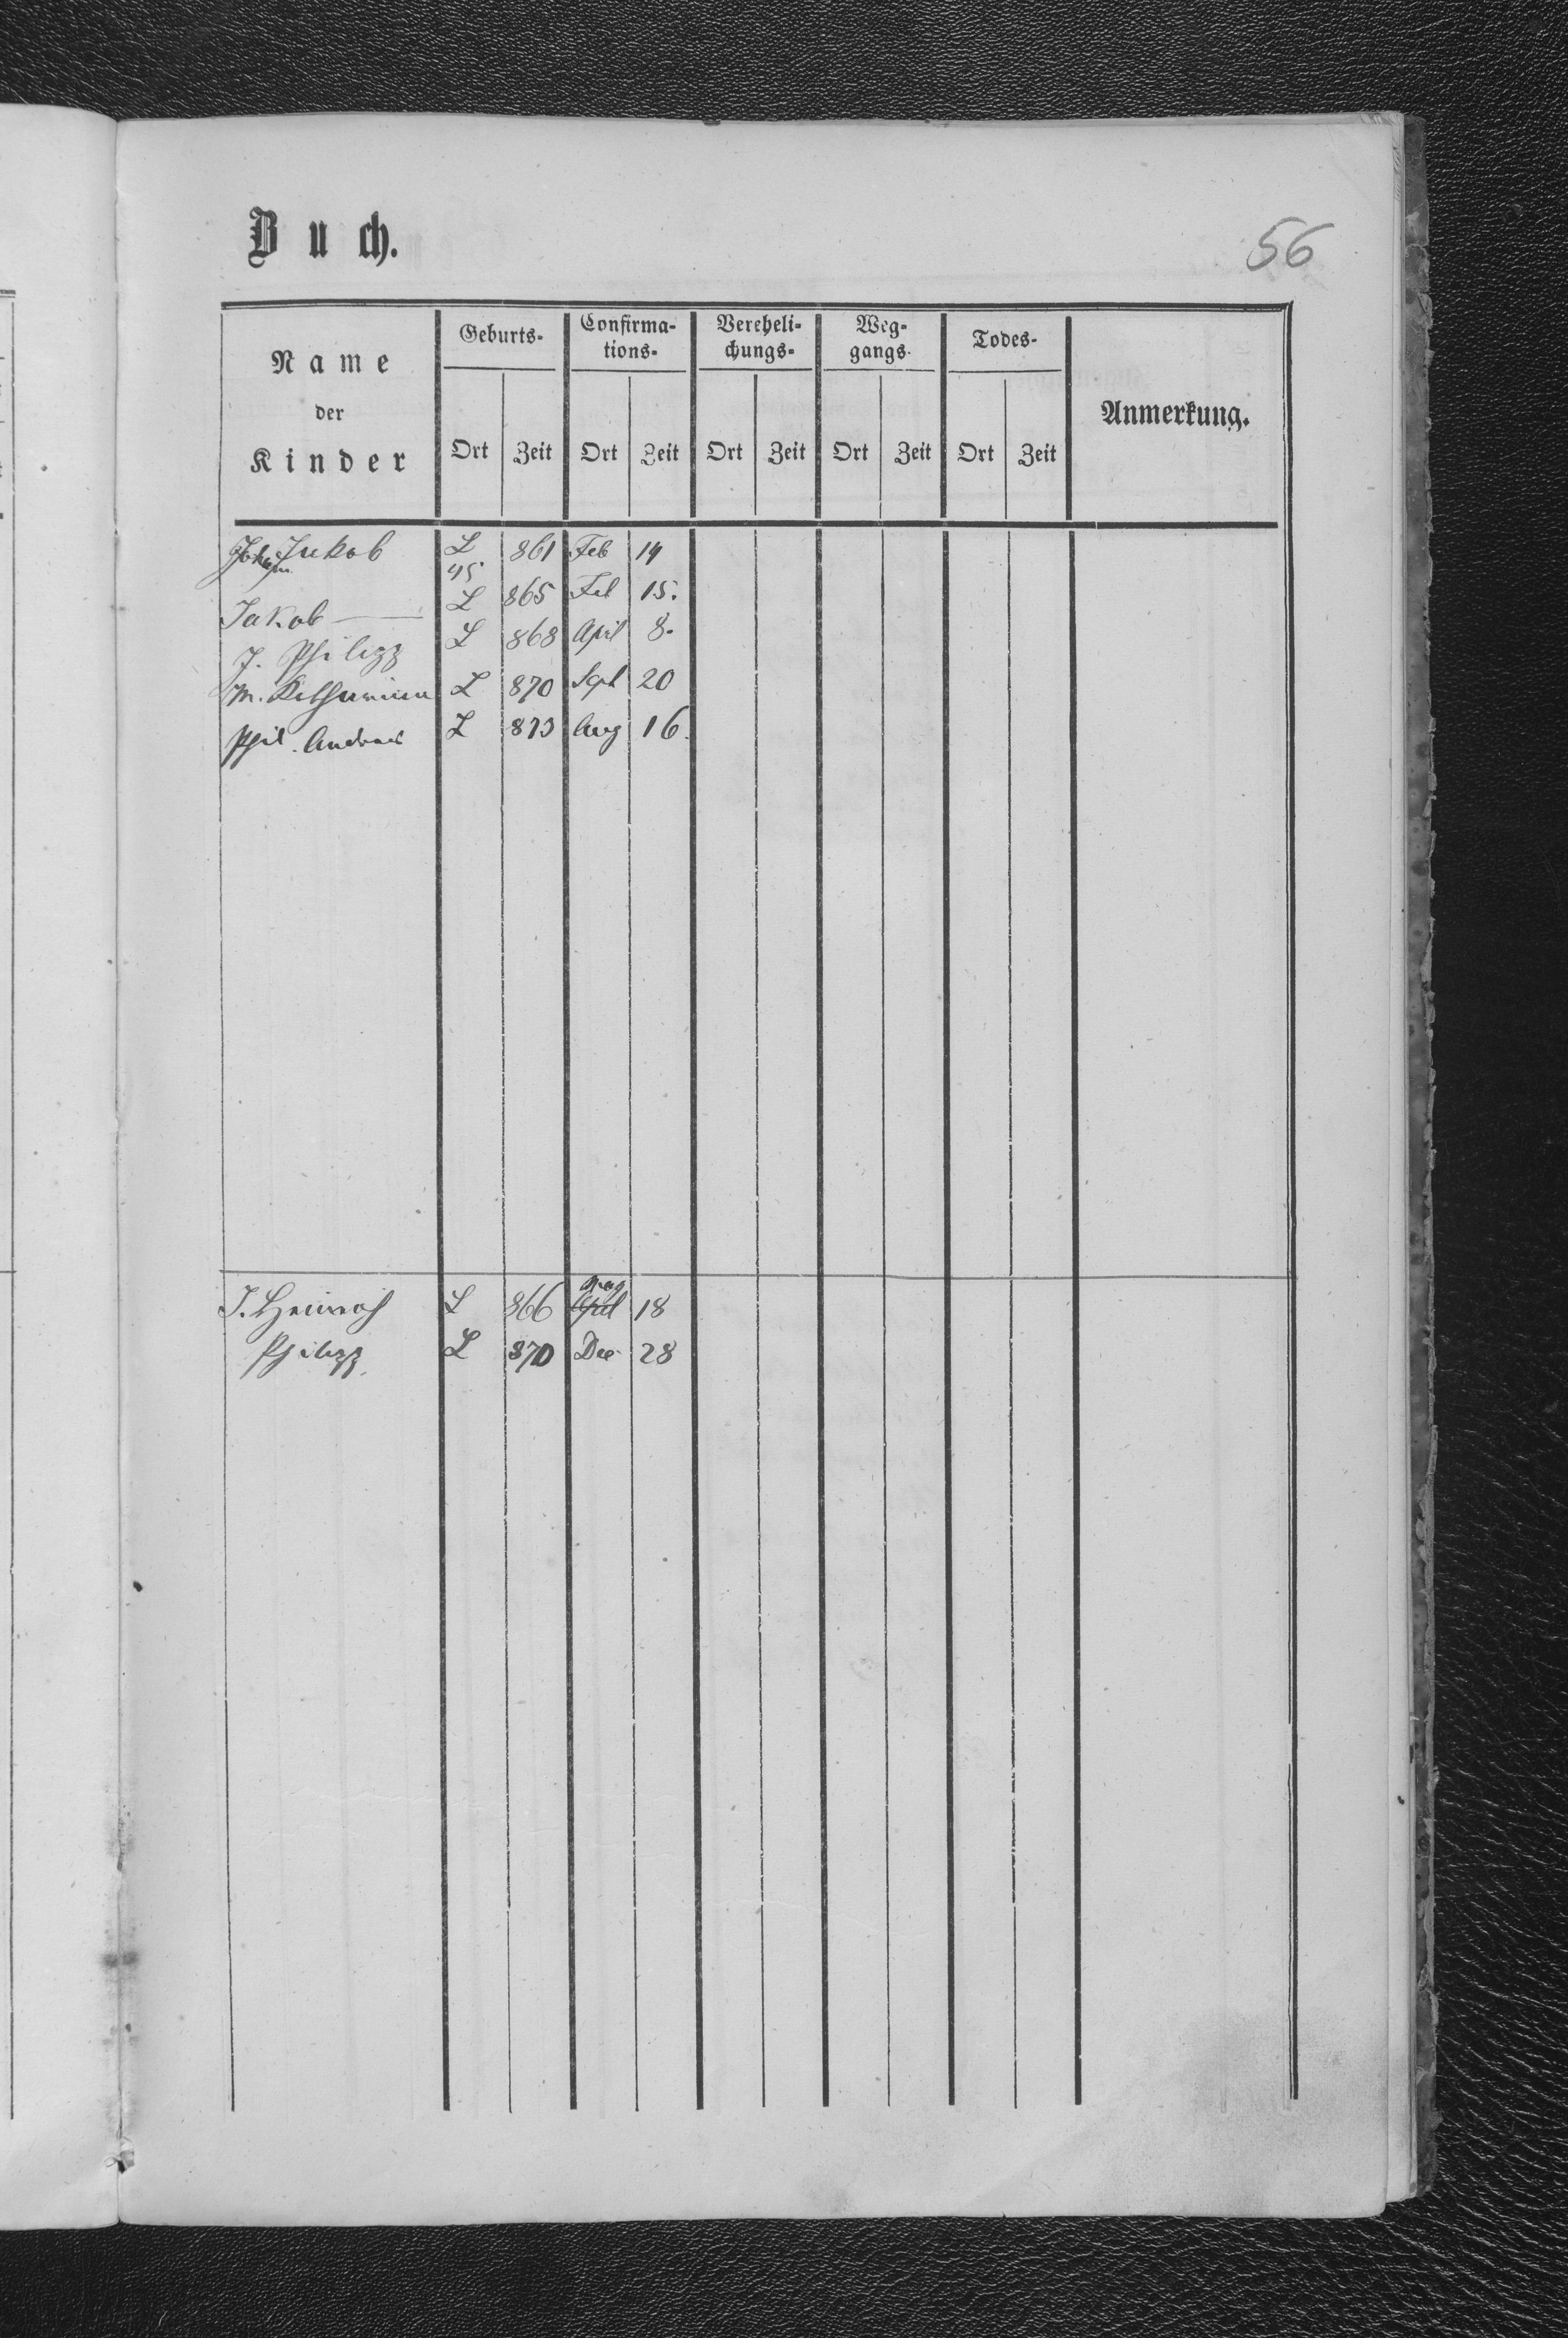 Buch.
56
Name der Kinder
Geburts-
Confirma-
tions-
Vereheli-
chungs-
Weg-
gangs-
Todes-
Anmerkung.
Ort Zeit Ort Zeit Ort Zeit Ort Zeit Ort Zeit
Johann Jakob L 861 Feb 14
45
Jakob L 865 Feb 15.
J. Philipp L 868 April 8.
M. Katharina L 870 Sept 20
Phil. Andreas L 873 Aug 16.
J. Heinrich L 866 April May 18
Philipp L 870 Dec 28